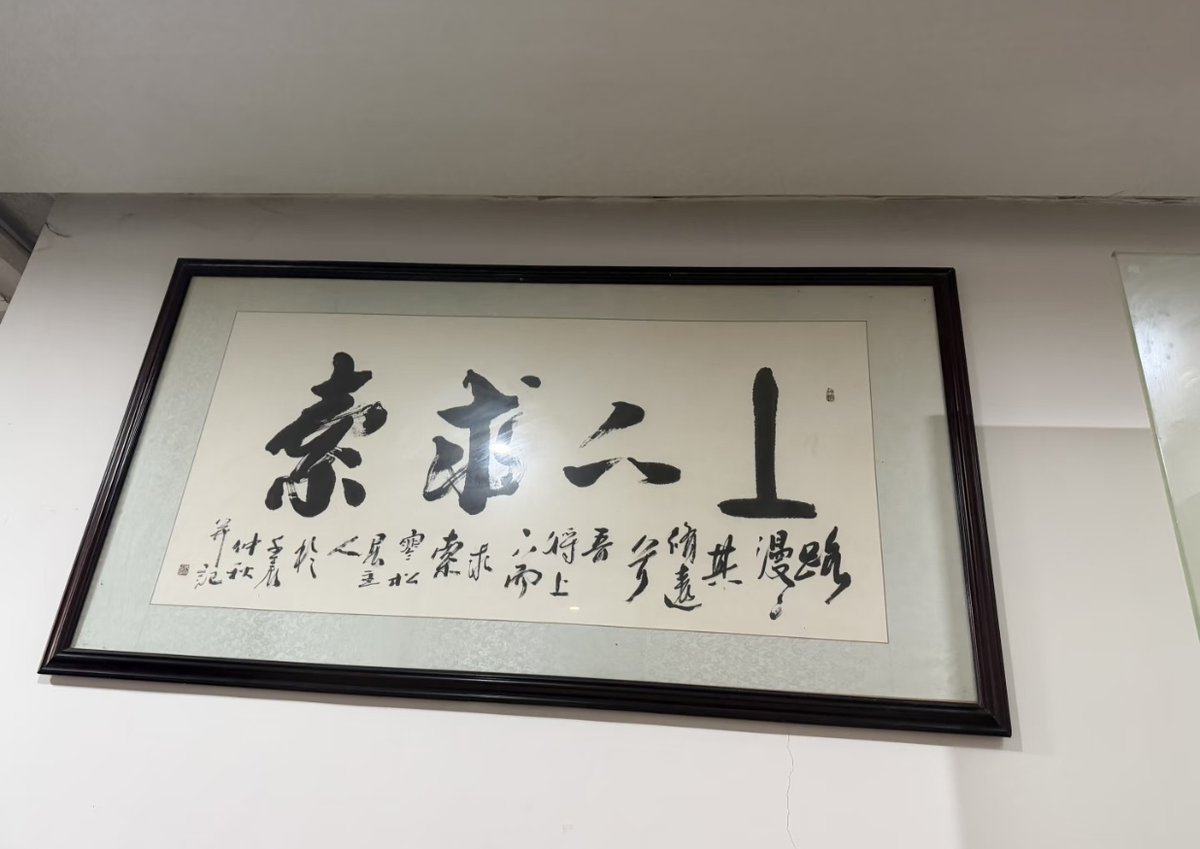 上下求索
路
漫々
其
脩遠
兮
吾
将上
下而
求
索
寒松
居主
人
於
壬辰
仲秋
并記